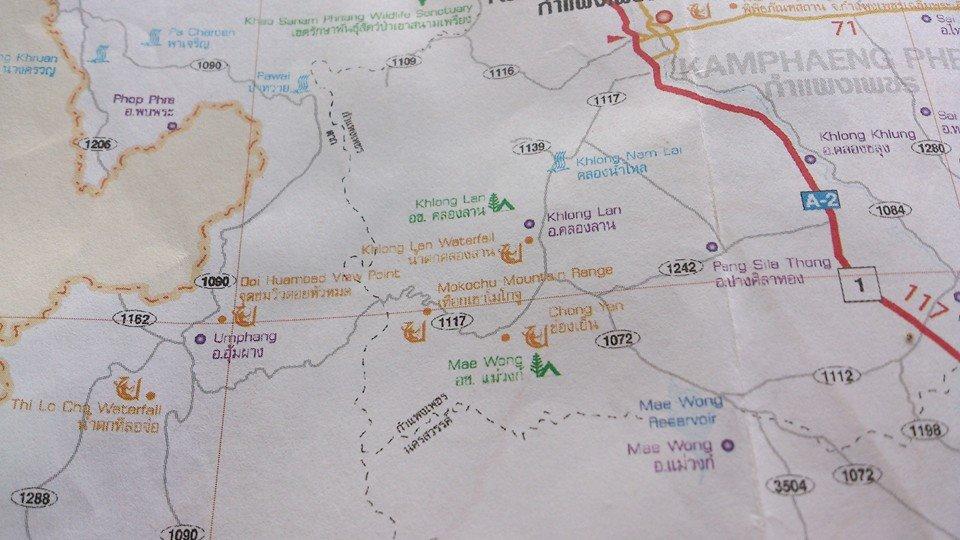 Khao Sanam Phriang Wildlife Sanctuary
เขตรักษาพันธุ์สัตว์ป่าเขาสนามเพรียง
กำแพงเพชร
71
Pa Charoen
พาเจริญ
1090
1109
1116
KAMPHAENG PHE
กำแพงเพชร
Khruan
นางครวญ
Pawai
ป่าหวาย
Phop Phra
อ.พบพระ
1117
กำแพงเพชร
ตาก
1206
1139
Khlong Nam Lai
คลองน้ำไหล
Khlong Khlung
อ.คลองขลุง
Sai
1280
Khlong Lan
อช. คลองลาน
A-2
1084
Khlong Lan
อ.คลองลาน
Khlong Lan Waterfall
น้ำตกคลองลาน
1242
Pang Sila Thong
อ.ปางศิลาทอง
1090
Doi Huamoad View Point
จุดชมวิวดอยหัวหมด
Mokochu Mountain Range
เทือกเขาโมโกจู
1
117
1162
1117
Chong Yen
ช่องเย็น
1072
Umphang
อ.อุ้มผาง
Mae Wong
อช. แม่วงก์
1112
Thi Lo Cho Waterfall
น้ำตกทีลอจ่อ
กำแพงเพชร
นครสวรรค์
Mae Wong
Reservoir
1198
Mae Wong
อ.แม่วงก์
1288
3504
1072
1090